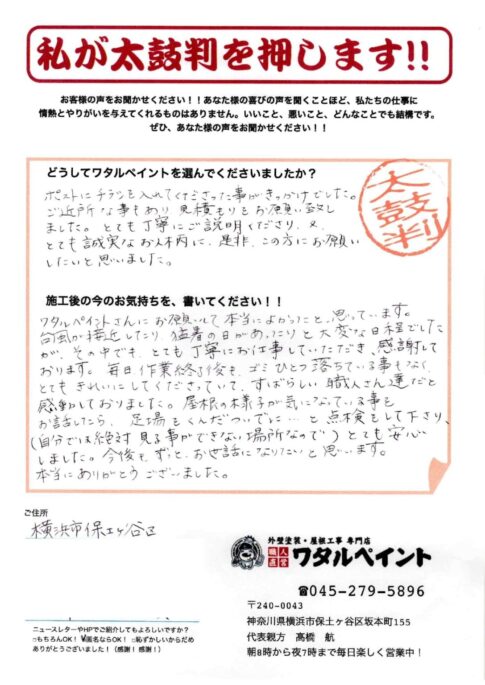 私が太鼓判を押します!!
お客様の声をお聞かせください!!あなた様の喜びの声を聞くことほど、私たちの仕事に
情熱とやりがいを与えてくれるものはありません。いいこと、悪いこと、どんなことでも結構です。
ぜひ、あなた様の声をお聞かせください!!
どうしてワタルペイントを選んでくださいましたか?
ポストにチラシを入れてくださった事がきっかけでした。
ご近所な事もあり、見積もりをお願い致し
ました。とても丁寧にご説明くださり、又、
とても誠実なお人柄に、是非、この方にお願い
したいと思いました。
太鼓判
施工後の今のお気持ちを、書いてください!!
ワタルペイントさんにお願いして本当によかったこと、思っています。
台風が接近したり、猛暑の日があったりと大変な日程でした
が、その中でも、とても丁寧にお仕事していただき、感謝して
おります。毎日作業終了後も、ゴミひとつ落ちている事もなく、
とてもきれいにしてくださっていて、すばらしい職人さん達だと
感動しておりました。屋根の様子が気になっている事も
お話したら、足場もくんだついでに…と点検をして下さり、
(自分では絶対見る事ができない場所なので)とても安心
しました。今後も、ずっと、お世話になりたいと思います。
本当にありがとうございました。
ご住所
横浜市保土ヶ谷区
外壁塗装・屋根工事 専門店
職人直営 ワタルペイント
☎045-279-5896
〒240-0043
神奈川県横浜市保土ヶ谷区坂本町155
代表親方 高橋 航
朝8時から夜7時まで毎日楽しく営業中!
ニュースレターやHPでご紹介してもよろしいですか?
□もちろんOK! ☑匿名ならOK! □恥ずかしいからだめ
ありがとうございました!(感謝!感謝!)